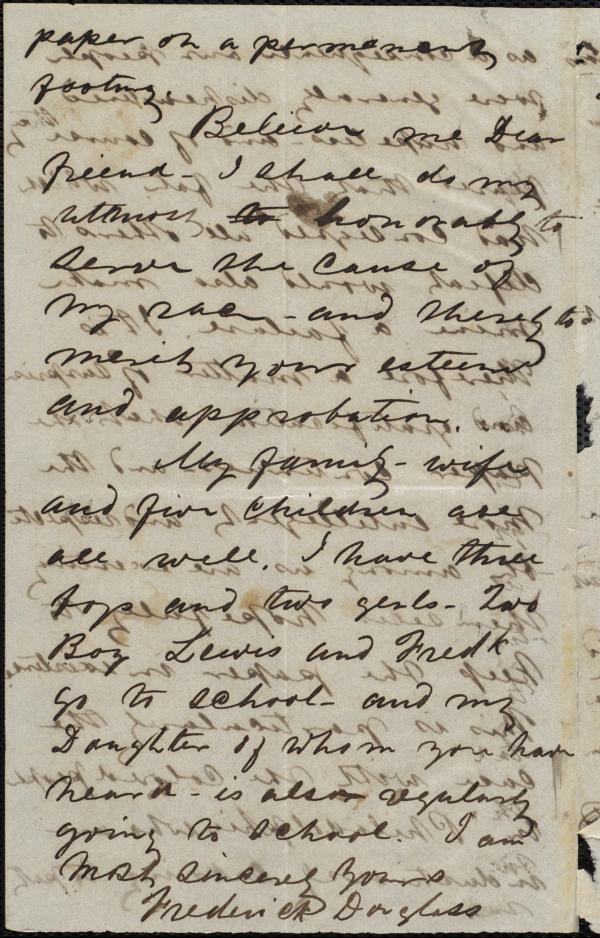 paper on a permanent
footing.
Believe me Dear
friend - I shall do my
utmost to honorably to
serve the cause of
my race - and thereby to
merit your esteem
and approbation.
My family - wife
and five children are
all well. I have three
boys and two girls - Two
Boy Lewis and Fredk
go to school - and my
Daughter of whom you have
heard - is also regularly
going to school. I am
Most sincerely yours
Frederick Douglass